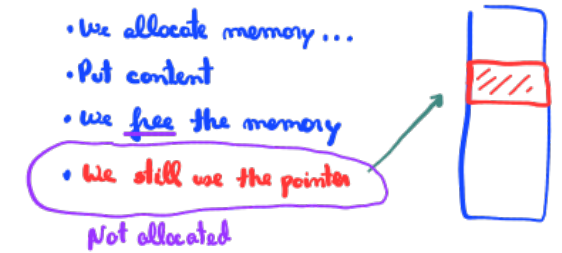 • We allocate memory...
• Put content
• We free the memory
• We still use the pointer
Not allocated